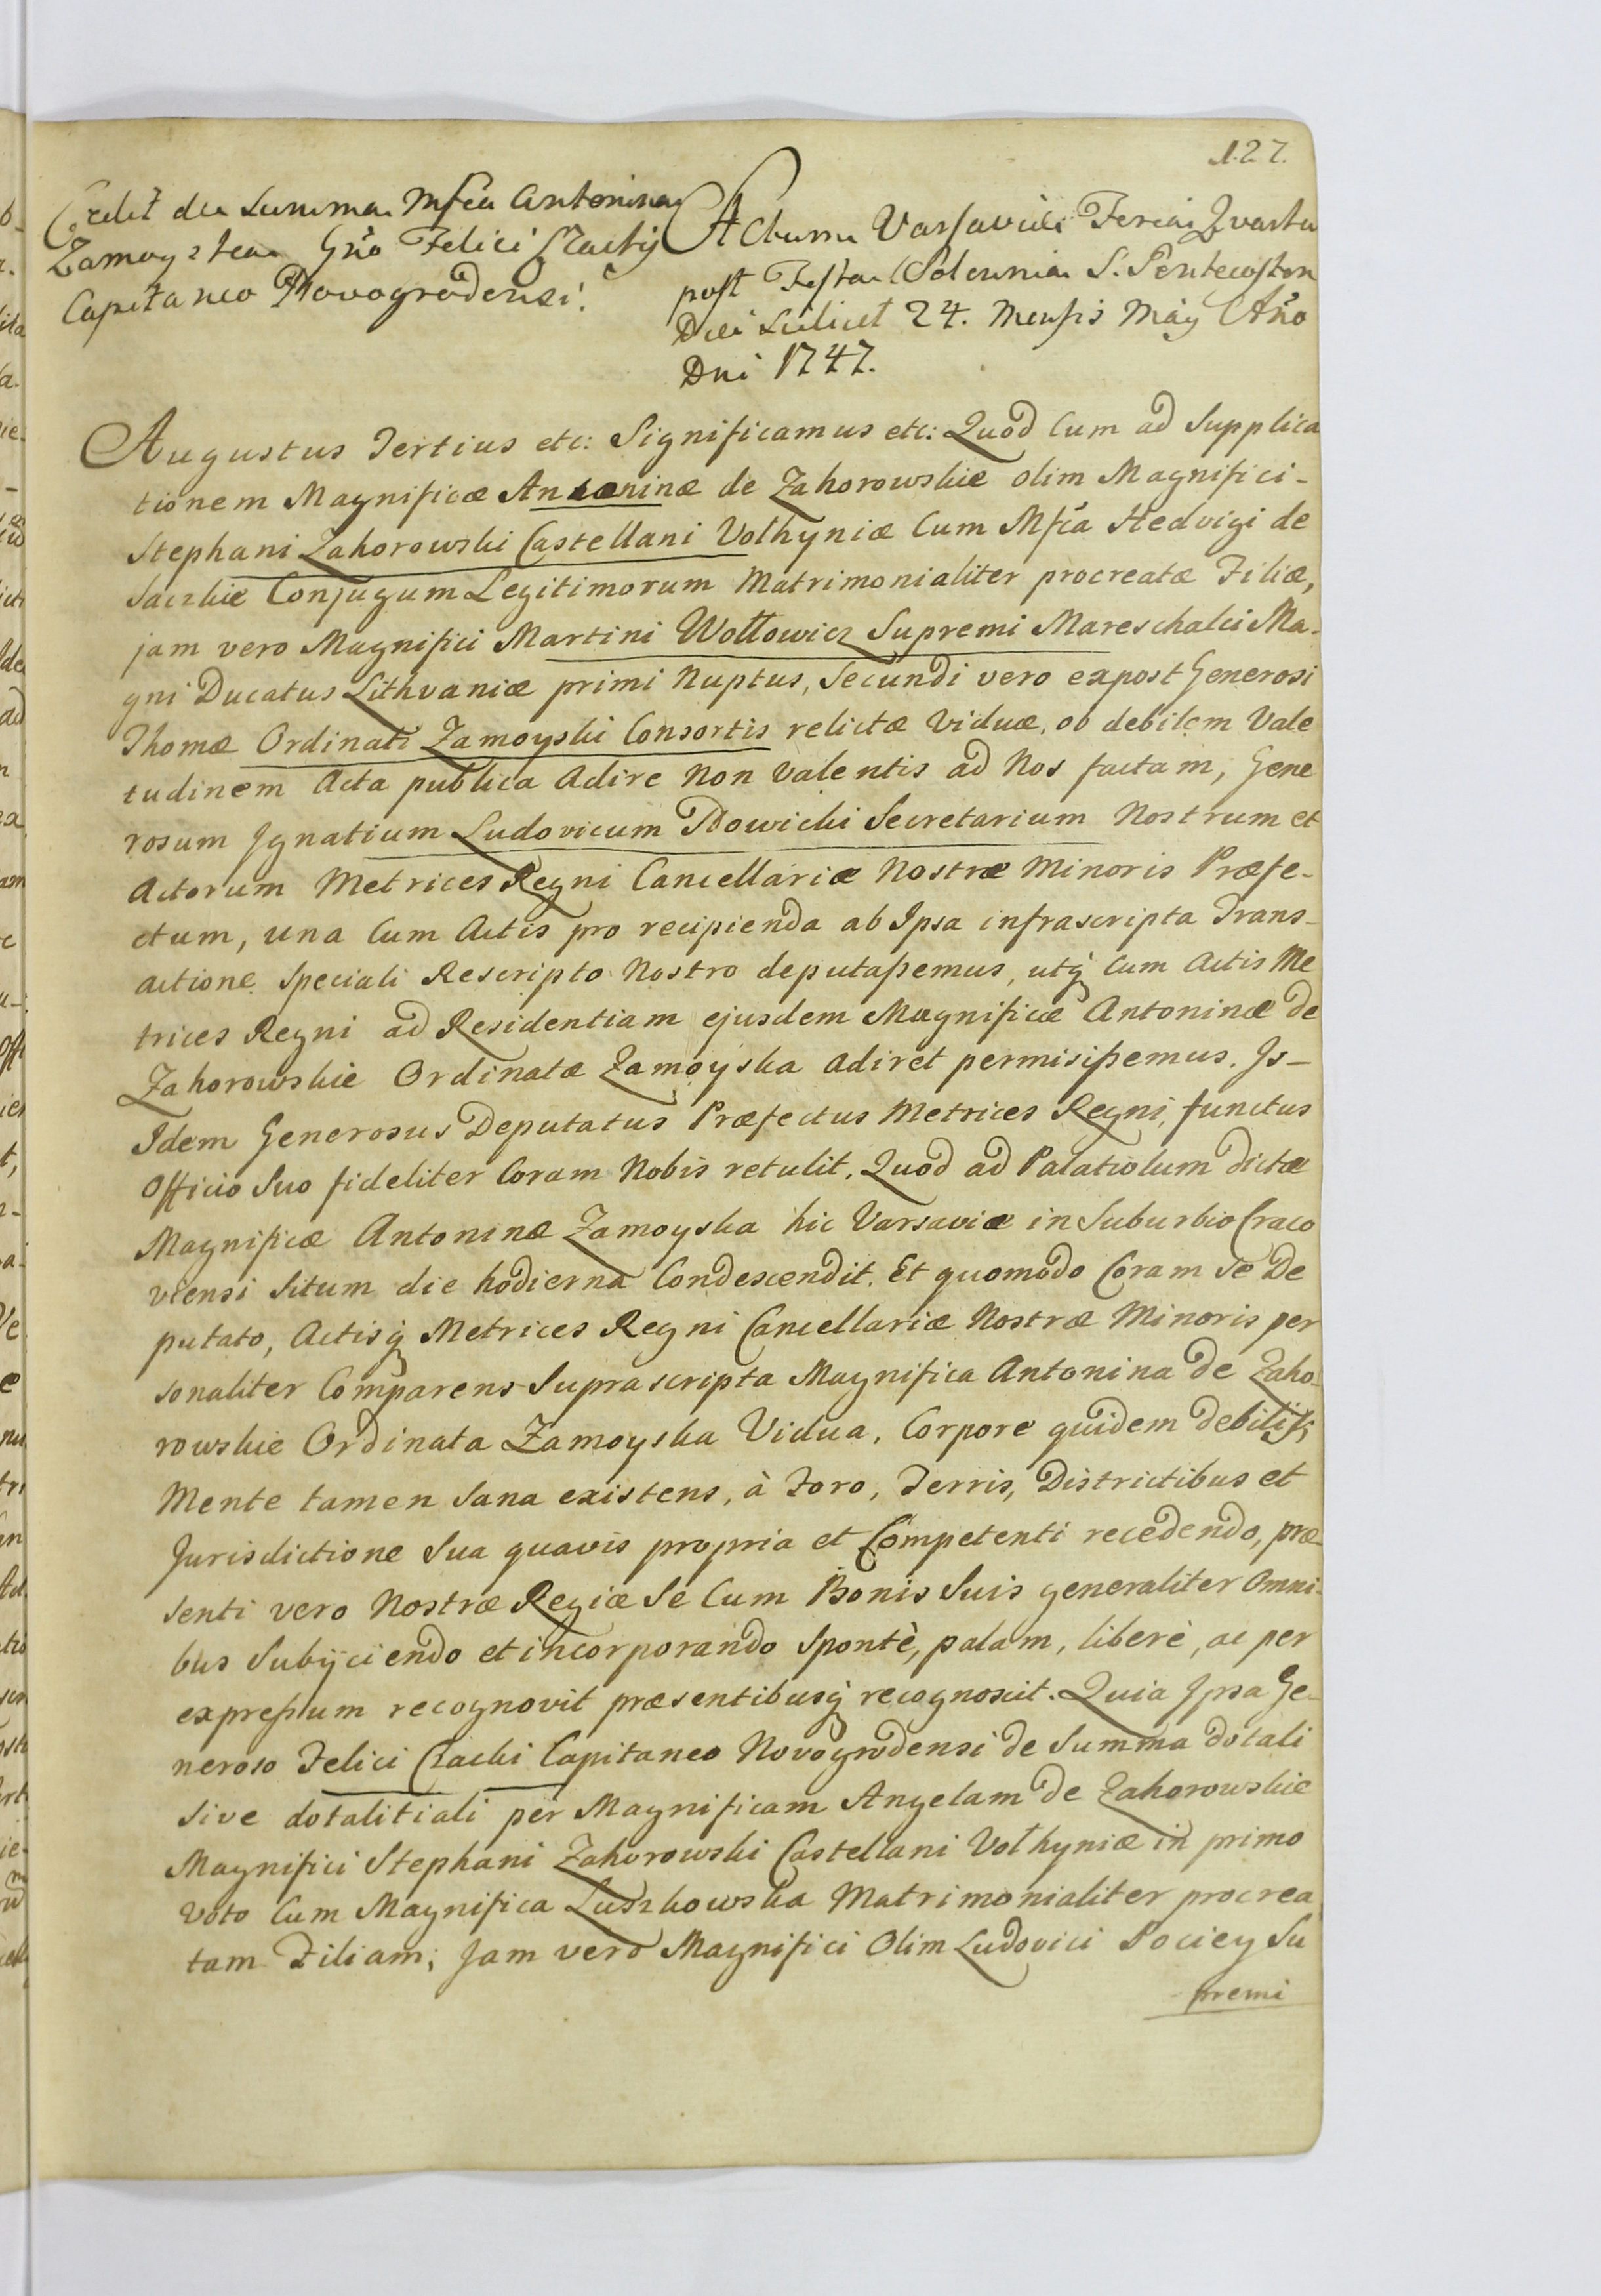 127.
Cedit de Summa Mfca Antonina
Zamoyska Gño Felici Czacki
Capitaneo Novogrodensi.
Actum Varsaviæ Feria Quarta
post Festa Solennia S. Pentecosten
Die scilicet 24. Mensis Maÿ Año
Dni 1747.
Augustus Tertius etc: Significamus etc: Quod Cum ad Supplica
tionem Magnificæ Antoninæ de Zahorowskie olim Magnifici-
Stephani Zahorowski Castellani Volhyniæ Cum Mfca Hedvigi de
Conjugum Legitimorum Matrimonialiter procreatæ Filiæ,
jam vero Magnifici Martini Wołłowicz Supremi Mareschalci Ma-
gni Ducatus Lithvaniæ primi Nuptus, Secundi vero expost Generosi
Thomæ Ordinati Zamoyski Consortis relictæ Viduæ, ob debilem Vale
tudinem Acta publica Adire Non Valentis ad Nos factam, Gene
rosum Ignatium Ludovicum Nowicki Secretarium Nostrum et
Actorum Metrices Regni Cancellariæ Nostræ Minoris Præfe-
ctum, una Cum Actis pro recipienda ab Ipsa infrascripta Trans-
actione Speciali Rescripto Nostro deputaßemus, utq́ Cum Actis Me
trices Regni ad Residentiam ejusdem Magnificæ Antoninæ de
Zahorowskie Ordinatæ Zamoyska adiret permisißemus. Is-
Idem Generosus Deputatus Præfectus Metrices Regni, functus
Officio Suo fideliter Coram Nobis retulit, Quod ad Palatiolum dictæ
Magnificæ Antoninæ Zamoyska hic Varsaviæ in Suburbio Craco
viensi Situm die hodierna Condescendit. Et quomodo Coram Se De
putato, Actisq́ Metrices Regni Cancellariæ Nostræ Minoris per
sonaliter Comparens Suprascripta Magnifica Antonina de Zaho-
rowskie Ordinata Zamoyska Vidua, Corpore quidem debilis,
Mente tamen Sana existens, à Foro, Terris, Districtibus et
Jurisdictione Sua quavis propria et Competenti recedendo, præ-
senti vero Nostræ Regiæ Se Cum Bonis Suis generaliter Omni-
bus Subÿciendo et incorporando Spontè, palam, liberè, ac per
expreßum recognovit præsentibusq́ recognoscit. Quia Ipsa Ge-
neroso Felici Czacki Capitaneo Novogrodensi de Summa dotali
Sive dotalitiali per Magnificam Angelam de Zahorowskie
Magnifici Stephani Zahorowski Castellani Volhyniæ in primo
Voto Cum Magnifica Matrimonialiter procrea
tam Filiam; Jam vero Magnifici Olim Ludovici Pociey Su
premi